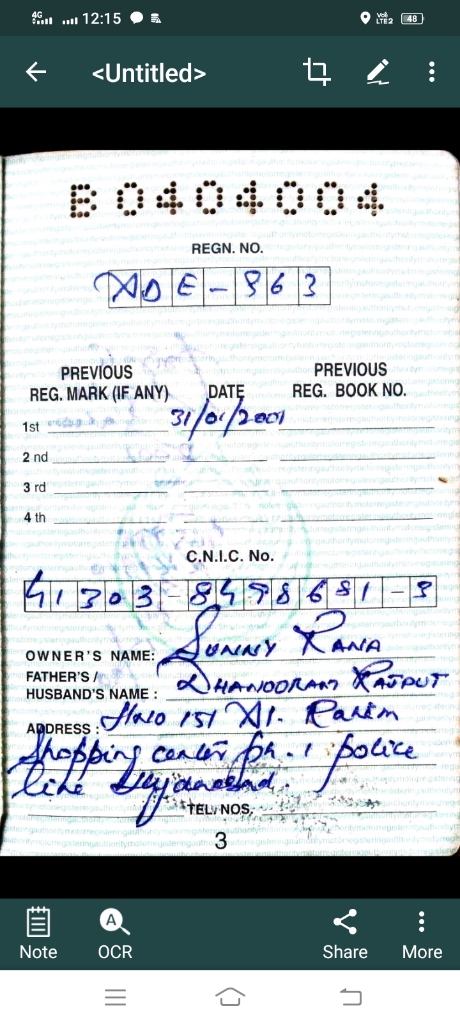 4G 12:15 Vo) LTE2 48
<Untitled>
B0404004
REGN. NO.
XDE-863
PREVIOUS REG. MARK (IF ANY) DATE PREVIOUS REG. BOOK NO.
1st 31/01/2001
2 nd
3 rd
4 th
C.N.I.C. No.
OWNER'S NAME: SUNNY RANA
FATHER'S / HUSBAND'S NAME : DHANOORAM RAJPUT
ADDRESS : H.no 151 Al. Rahim
Shopping center ph. 1 police
line
TEL. NOS.
3
Note OCR Share More